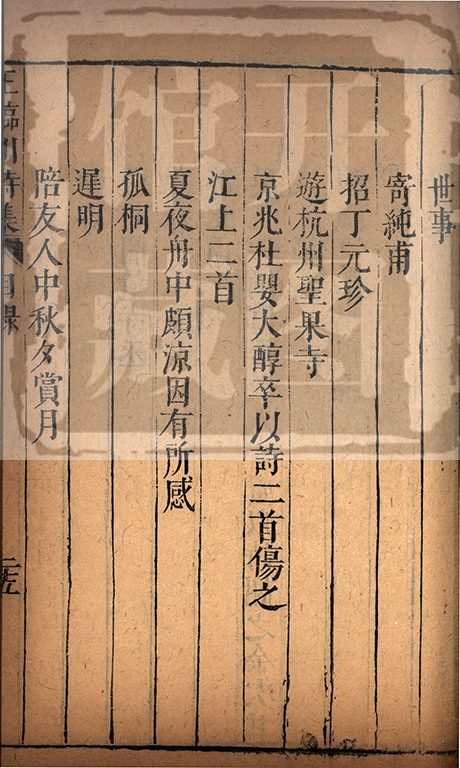 世事
寄純甫
招丁元珍
遊杭州聖果寺
京兆杜嬰大醇卒以詩二首傷之
江上二首
夏夜舟中頗涼因有所感
孤桐
遲明
陪友人中秋夕賞月
王臨川詩集 目錄